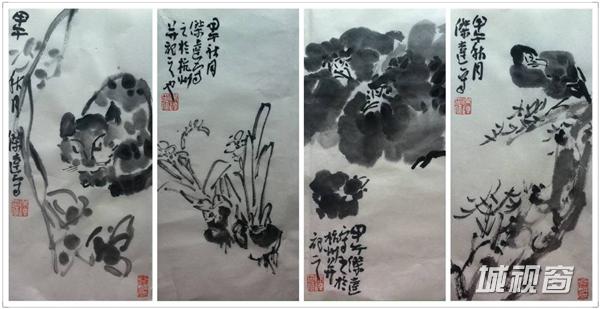 甲午秋月傑達写
甲午秋月
傑達写
之於杭州
并記之也
甲午傑達
写之於
杭州并
記之
甲午秋月
傑達写
城视窗